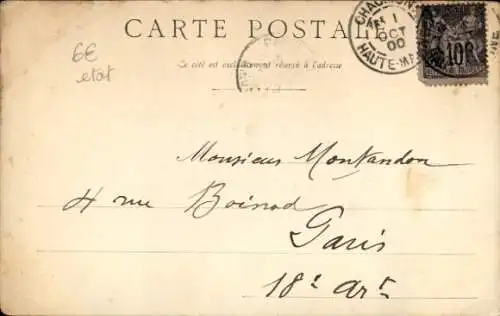 CARTE POSTALE
Ce côté est exclusivement réservé à l'adresse
6€
etat
1
OCT
00
HAUTE-M
10
Monsieur Montandon
4 rue Boinod
Paris
18e Arrt